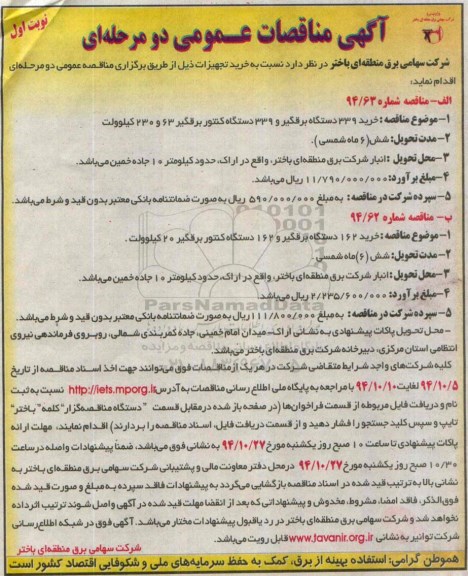 نوبت اول
آگهی مناقصات عـمـومی دو مرحله‌ای
شرکت سهامی برق منطقه‌ای باختر در نظر دارد نسبت به خرید تجهیزات ذیل از طریق برگزاری مناقصه عمومی دو مرحله‌ای
اقدام نماید:
الف- مناقصه شماره ۹۴/۶۳
۱- موضوع مناقصه: خرید ۳۳۹ دستگاه برقگیر و ۳۳۹ دستگاه کنتور برقگیر ۶۳ و ۲۳۰ کیلوولت
۲- مدت تحویل: شش (۶ ماه شمسی).
۳- محل تحویل: انبار شرکت برق منطقه‌ای باختر، واقع در اراک، حدود کیلومتر ۱۰ جاده خمین می‌باشد.
۴- مبلغ برآورد: ۱۱/۷۹۰/۰۰۰/۰۰۰ ریال می‌باشد.
۵- سپرده شرکت در مناقصه: به مبلغ ۵۹۰/۰۰۰/۰۰۰ ریال به صورت ضمانتنامه بانکی معتبر بدون قید و شرط می‌باشد.
ب- مناقصه شماره ۹۴/۶۲
۱- موضوع مناقصه: خرید ۱۶۲ دستگاه برقگیر و ۱۶۲ دستگاه کنتور برقگیر ۲۰ کیلوولت.
۲- مدت تحویل: شش (۶ ماه شمسی).
۳- محل تحویل: انبار شرکت برق منطقه‌ای باختر، واقع در اراک، حدود کیلومتر ۱۰ جاده خمین می‌باشد.
۴- مبلغ برآورد: ۲/۲۳۵/۶۰۰/۰۰۰ ریال می‌باشد.
۵- سپرده شرکت در مناقصه: به مبلغ ۱۱۱/۸۰۰/۰۰۰ ریال به صورت ضمانتنامه بانکی معتبر بدون قید و شرط می‌باشد.
- محل تحویل پاکات پیشنهادی به نشانی اراک- میدان امام خمینی، جاده کمربندی شمالی، روبروی فرماندهی نیروی
انتظامی استان مرکزی، دبیرخانه شرکت برق منطقه‌ای باختر می‌باشد.
کلیه شرکت‌های واجد شرایط متقاضی شرکت در هر یک از مناقصات فوق می‌توانند جهت اخذ اسناد مناقصه از تاریخ
۹۴/۱۰/۵ لغایت ۹۴/۱۰/۱۰ با مراجعه به پایگاه ملی اطلاع رسانی مناقصات به آدرس http://iets.mporg.ir نسبت به ثبت
نام و دریافت فایل مربوطه از قسمت فراخوان‌ها (در صفحه باز شده در مقابل قسمت "دستگاه مناقصه‌گزار" کلمه "باختر"
تایپ و سپس کلید جستجو را فشار دهید و از قسمت دریافت فایل، اسناد مناقصه را بردارند) اقدام نمایند، مهلت ارائه
پاکات پیشنهادی تا ساعت ۱۰ صبح روز یکشنبه مورخ ۹۴/۱۰/۲۷ به نشانی فوق می‌باشد، ضمناً پیشنهادات واصله در ساعت
۱۰/۳۰ صبح روز یکشنبه مورخ ۹۴/۱۰/۲۷ در محل دفتر معاونت مالی و پشتیبانی شرکت سهامی برق منطقه‌ای باختر به
نشانی بالا به ترتیب قید شده در اسناد مناقصه بازگشایی می‌گردد به پیشنهادات فاقد سپرده به مبلغ و صورت قید شده
فوق‌الذکر، فاقد امضا، مشروط، مخدوش و پیشنهاداتی که بعد از انقضا مهلت قید شده در آگهی واصل شوند ترتیب اثر داده
نخواهد شد و شرکت سهامی برق منطقه‌ای باختر در رد یا قبول پیشنهادات مختار می‌باشد. آگهی فوق در شبکه اطلاع‌رسانی
شرکت توانیر به نشانی www.tavanir.org.ir قابل رویت می‌باشد.
شرکت سهامی برق منطقه‌ای باختر
هموطن گرامی: استفاده بهینه از برق، کمک به حفظ سرمایه‌های ملی و شکوفایی اقتصاد کشور است
ParsNamadData